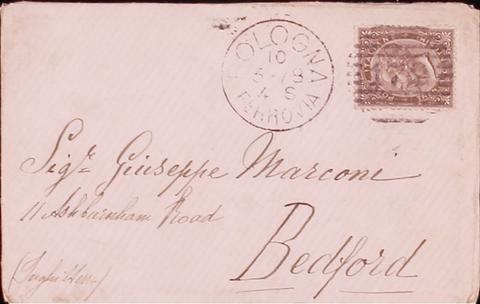 BOLOGNA
10
5-78
4 S
FERROVIA
Sigr Giuseppe Marconi
11 Ashburnham Road
Bedford
(Inghilterra)